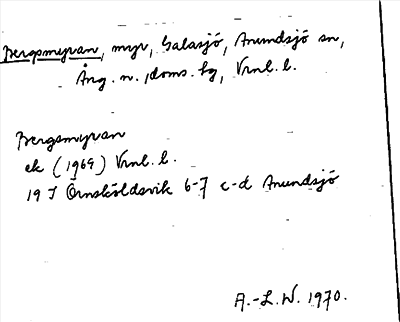 Bergsmyran, myr, Galasjö, Anundsjö sn,
Ång. n. doms. bg, Vrnl. l.
Bergsmyran
ek (1969) Vrnl. l.
19 I Örnsköldsvik 6-7 c-d Anundsjö
A.-L.W. 1970.